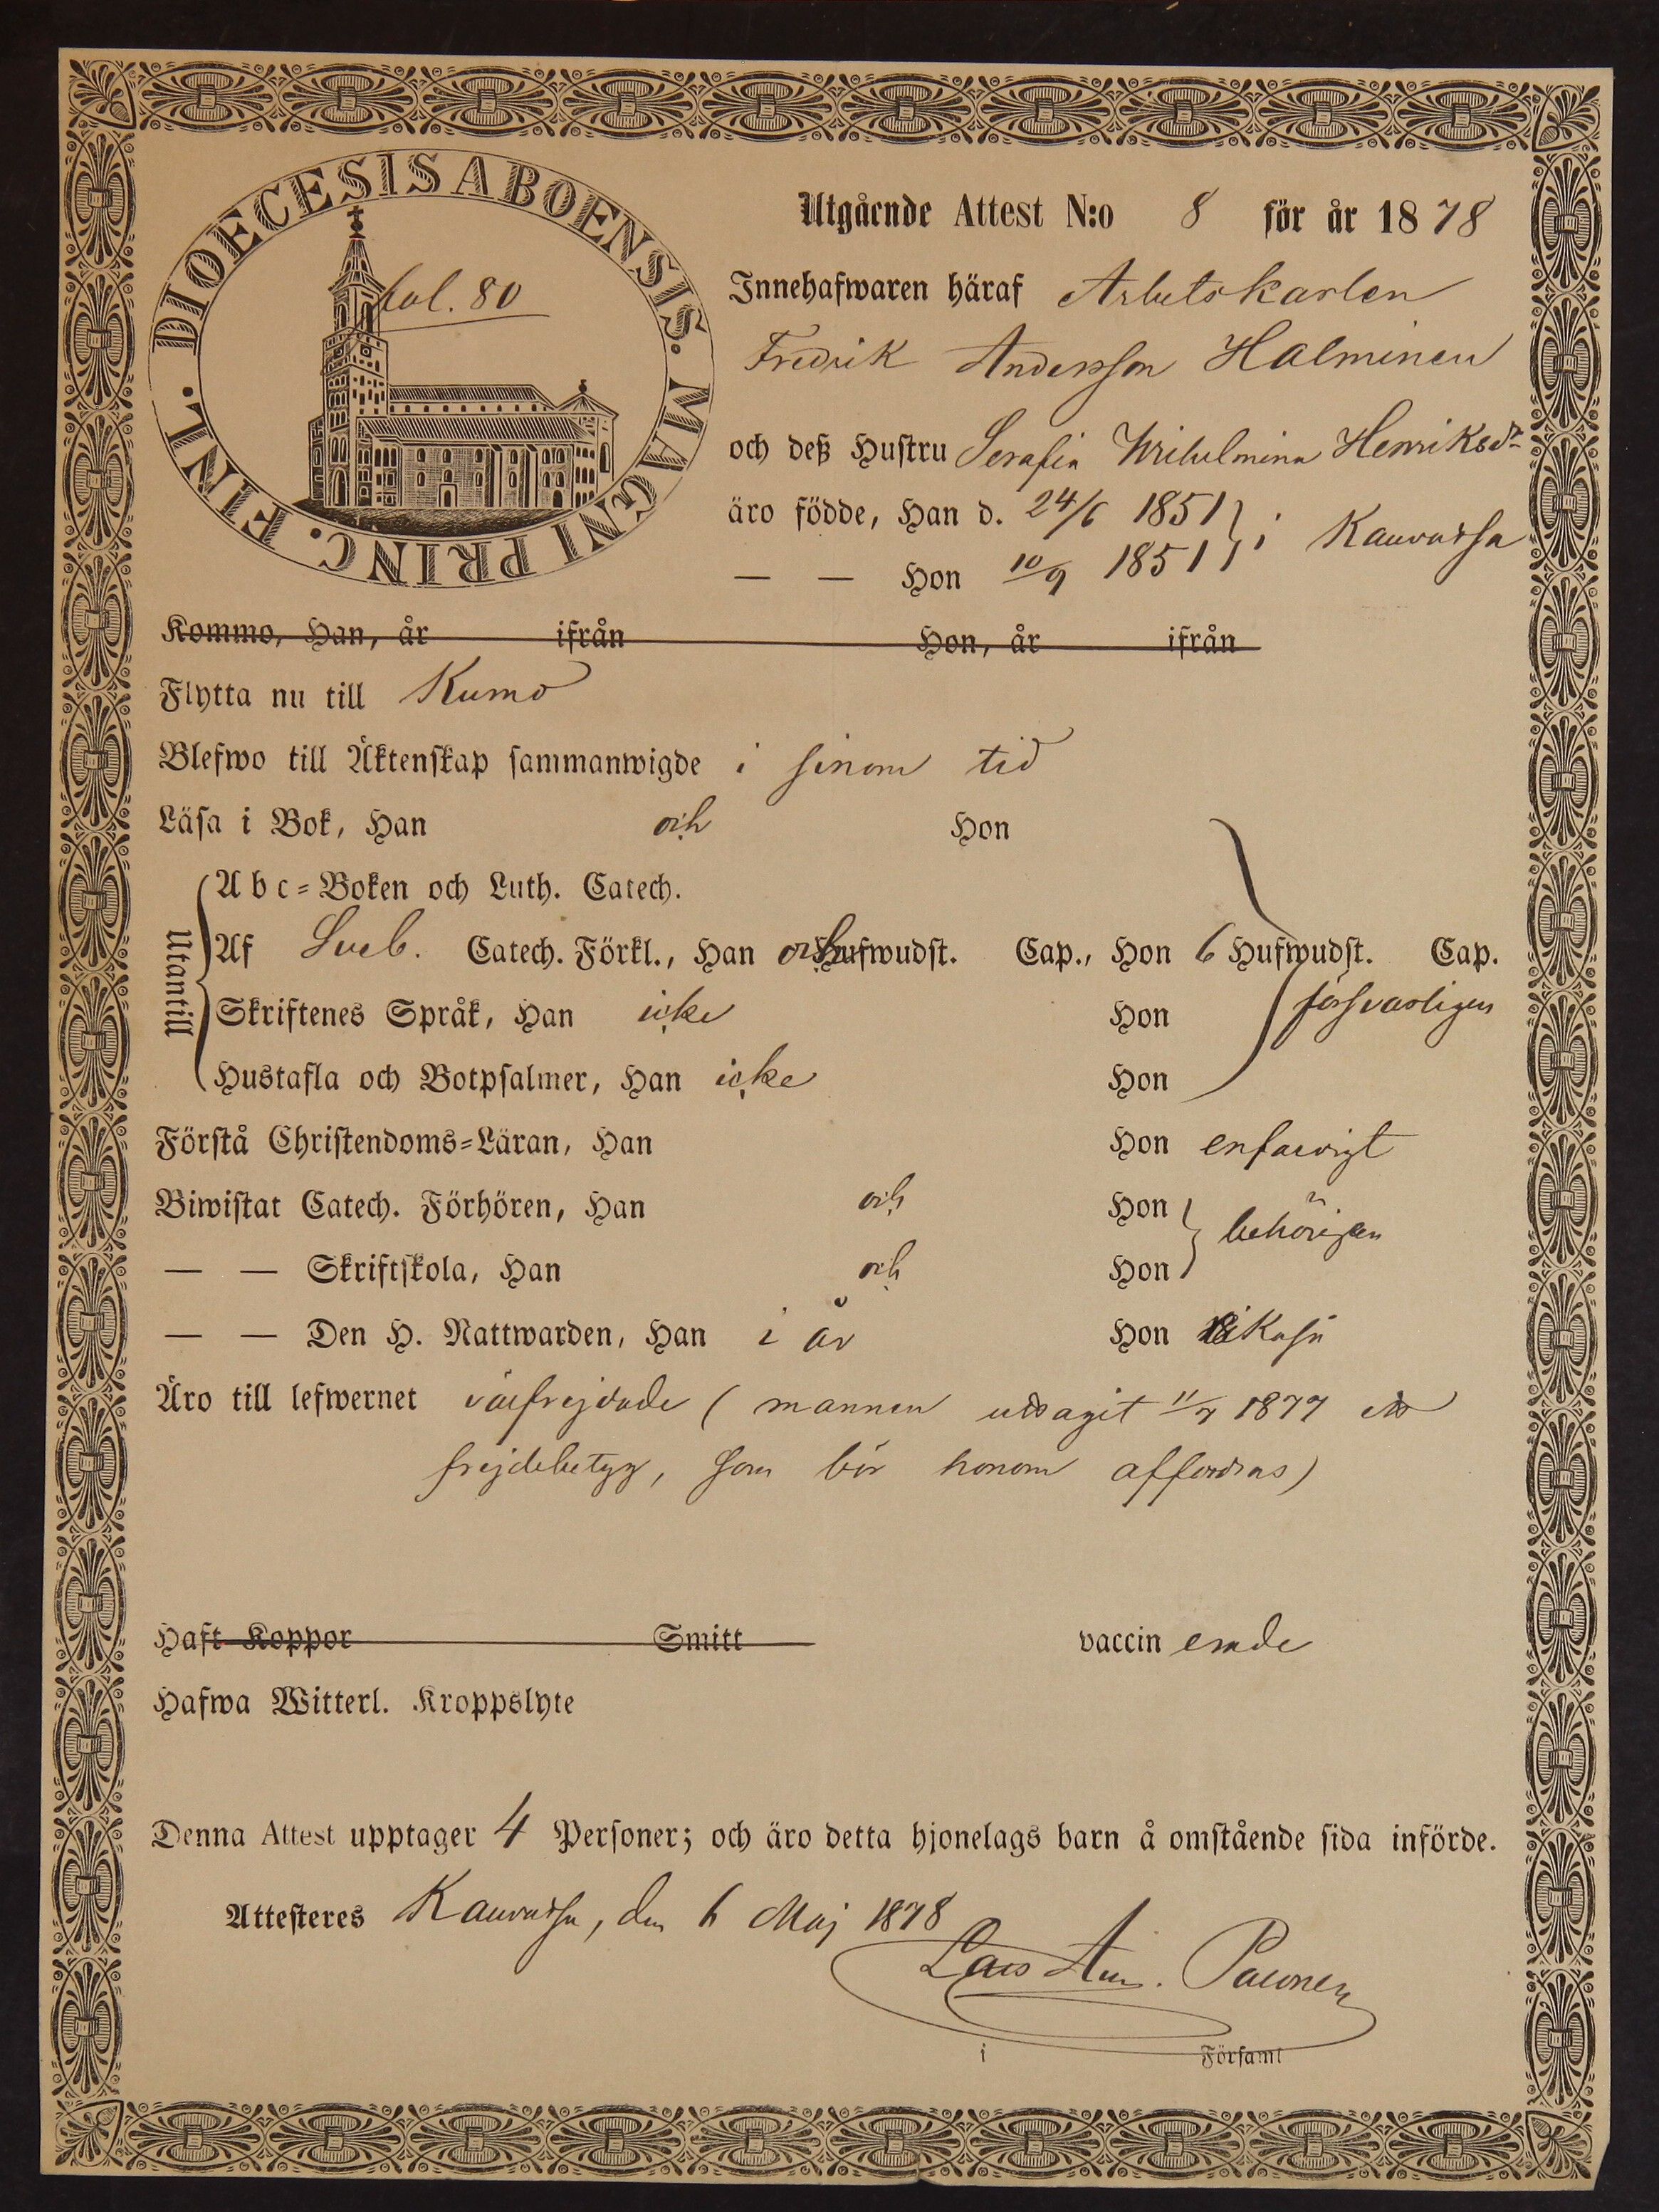 DIOECESIS ABOENSIS. MAGNI PRINC. FINL.
fol. 80
Utgående Attest N:o 8 för år 1878
Innehafwaren häraf Arbetskarlen
Fredrik Andersson Halminen
och deß Hustru Serafia Wilhelmina Henriksdr
äro födde, Han d. 24/6 1851 } i Kauvatsa
— — Hon 10/9 1851
Kommo, Han, år ifrån Hon, år ifrån
Flytta nu till Kumo
Blefwo till Äktenskap sammanwigde i sinom tid
Läsa i Bok, Han och Hon
Utantill
Abc-Boken och Luth. Catech.
Af Sveb. Catech. Förkl., Han och Hufwudst. Cap., Hon 6 Hufwudst. Cap.
Skriftenes Språk, Han icke Hon försvarligen
Hustafla och Botpsalmer, Han icke Hon
Förstå Christendoms-Läran, Han Hon enfaldigt
Biwistat Catech. Förhören, Han och Hon } behörigen
— — Skriftskola, Han och Hon
— — Den H. Nattwarden, Han i år Hon likaså
Äro till lefwernet välfrejdade (mannen uttagit 11/7 1877 ett
frejdebetyg, som bör honom affordras)
Haft Koppor Smitt vaccinerade
Hafwa Witterl. Kroppslyte
Denna Attest upptager 4 Personer; och äro detta hjonelags barn å omstående sida införde.
Attesteres Kauvatsa, den 6 Maj 1878
Lars Paconen
i Församl